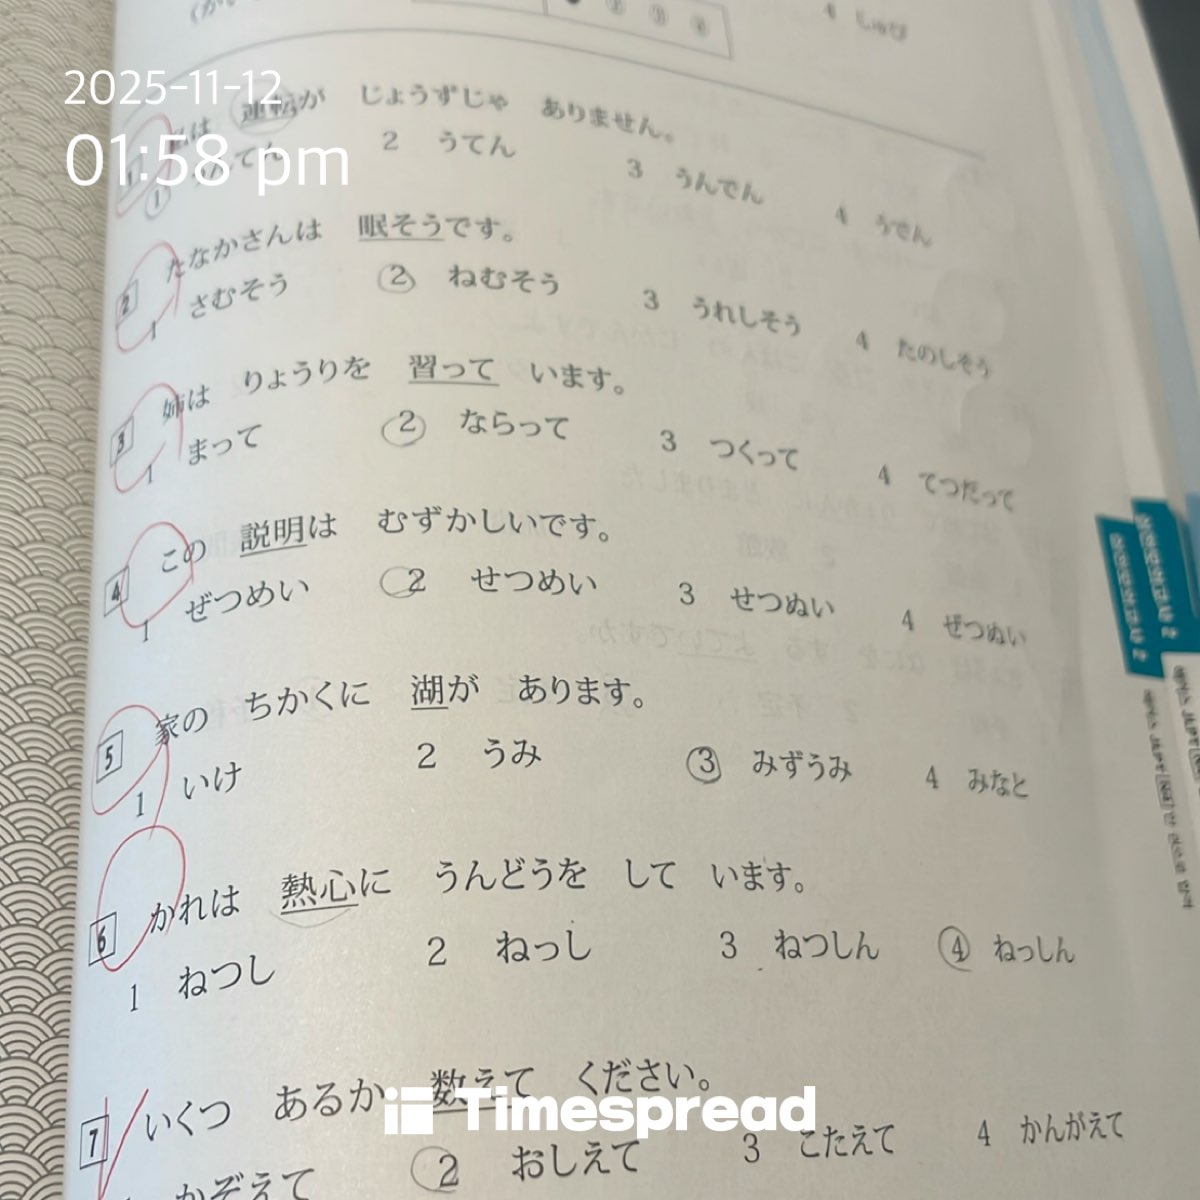 4 じゅび
2025-11-12
01:58 pm
は 運転が じょうずじゃ ありません。
1 てん 2 うてん 3 うんでん 4 うでん
2 たなかさんは 眠そうです。
1 さむそう 2 ねむそう 3 うれしそう 4 たのしそう
3 姉は りょうりを 習って います。
1 まって 2 ならって 3 つくって 4 てつだって
4 この 説明は むずかしいです。
1 ぜつめい 2 せつめい 3 せつぬい 4 ぜつぬい
5 家の ちかくに 湖が あります。
1 いけ 2 うみ 3 みずうみ 4 みなと
6 かれは 熱心に うんどうを して います。
1 ねつし 2 ねっし 3 ねつしん 4 ねっしん
7 いくつ あるか 数えて ください。
かぞえて 2 おしえて 3 こたえて 4 かんがえて
Timespread